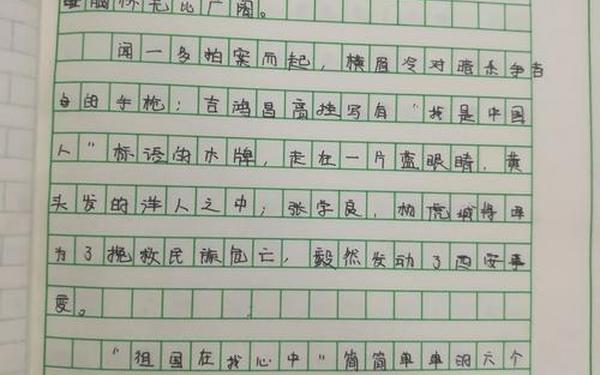 胸怀无比广阔。
闻一多拍案而起，横眉冷对暗杀争者
自的手枪；吉鸿昌高挂写有“我是中国
人”标语的木牌，走在一片蓝眼睛、黄
头发的洋人之中；张学良，杨虎城将军
为了挽救民族危亡，毅然发动了西安事
变。
“祖国在我心中”简简单单的六个